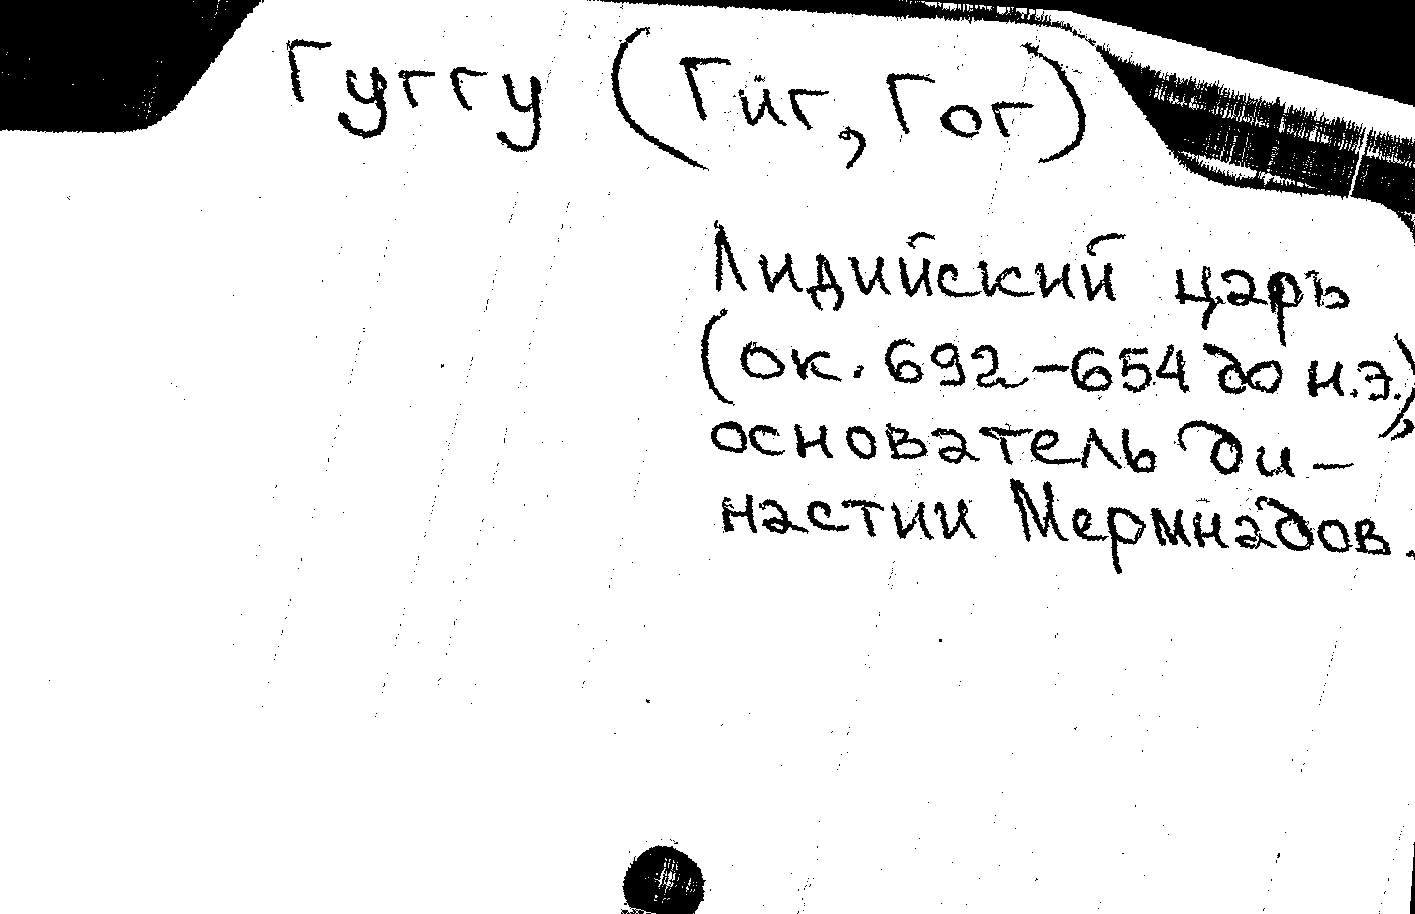 Гуггу (Гиг, Гог)
Лидийский царь
(ок. 692-654 до н.э.),
основатель ди-
настии Мермнадов.